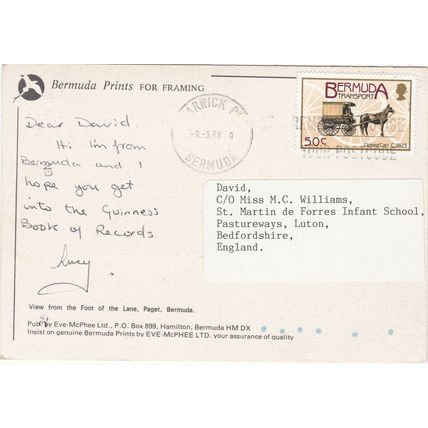 Bermuda Prints FOR FRAMING
Dear David.
Hi I'm from
Bermuda and I
hope you get
into the Guinness
Book of Records.
Lucy.
BERMUDA
-2.3.88
BERMUDA
TRANSPORT
50c
POSTCODE
David,
C/O Miss M.C. Williams,
St. Martin de Forres Infant School,
Pastureways, Luton,
Bedfordshire,
England.
View from the Foot of the Lane, Paget, Bermuda.
Pub. by Eve-McPhee Ltd., P.O. Box 899, Hamilton, Bermuda HM DX
Insist on genuine Bermuda Prints by EVE-McPHEE LTD. your assurance of quality